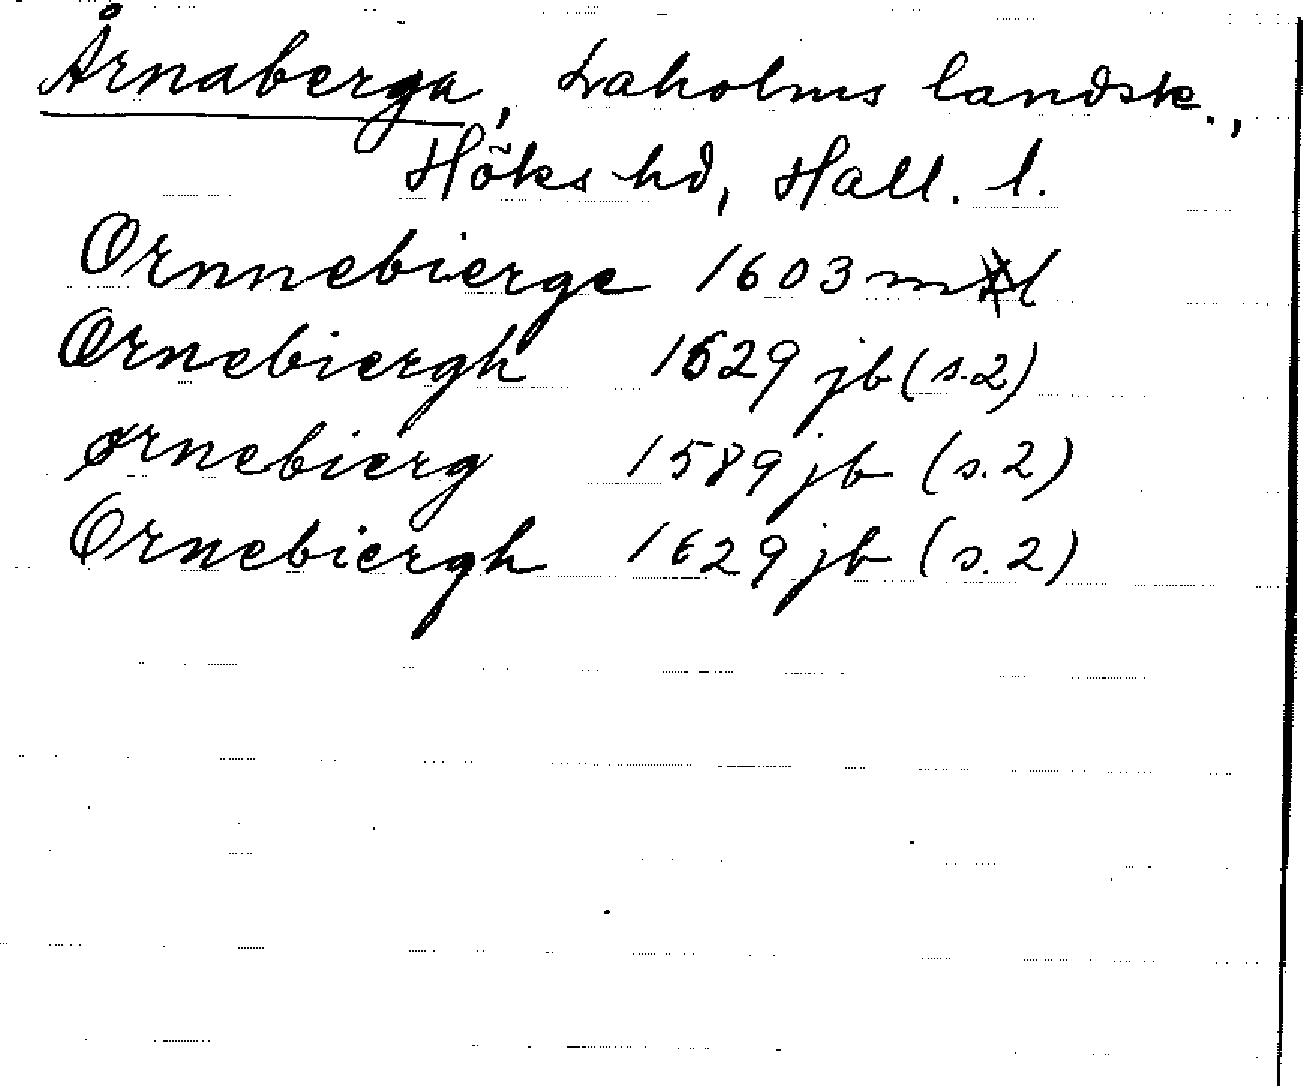 Årnaberga, Laholms landsk.,
Höks hd, Hall. l.
Ornnebierge 1603 ml
Ornebiergh 1629 jb (s.2)
Ørnebierg 1589 jb (s.2)
Ornebiergh 1629 jb (s.2)